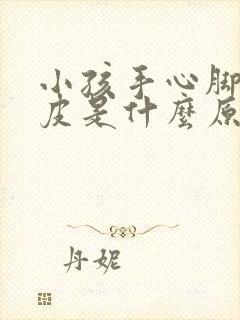 小孩手心脚
皮是什麼原
丹妮